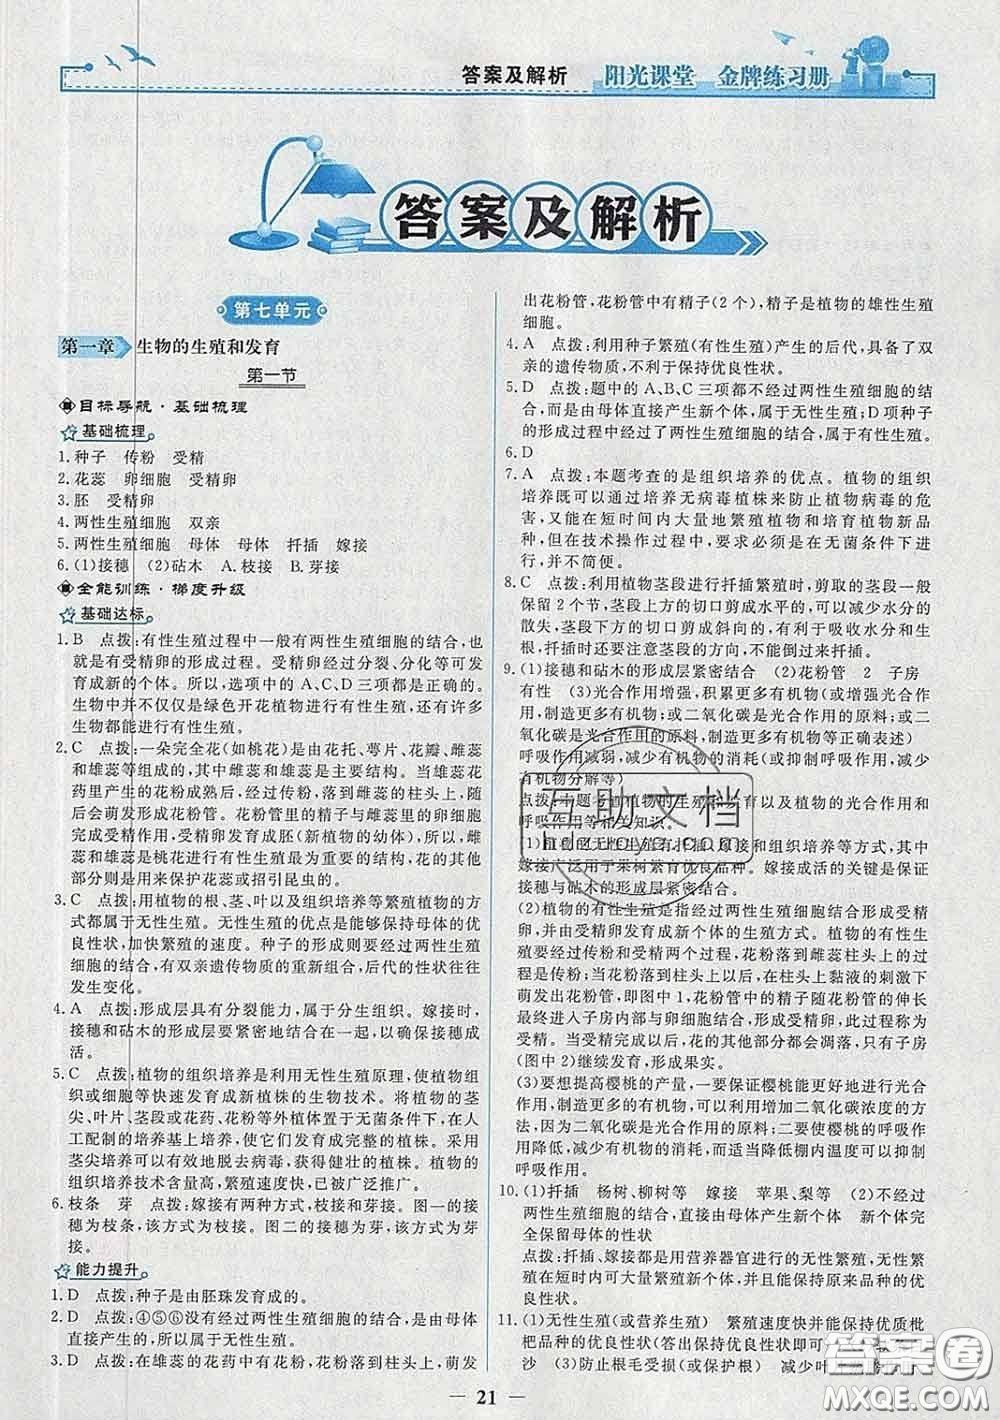 答案及解析
阳光课堂 金牌练习册
答案及解析
第七单元
第一章 生物的生殖和发育
第一节
目标导航·基础梳理
基础梳理
1.种子 传粉 受精
2.花蕊 卵细胞 受精卵
3.胚 受精卵
4.两性生殖细胞 双亲
5.两性生殖细胞 母体 母体 扦插 嫁接
6.(1)接穗 (2)砧木 A.枝接 B.芽接
全能训练·梯度升级
基础达标
1.B 点拨:有性生殖过程中一般有两性生殖细胞的结合,也
就是有受精卵的形成过程。受精卵经过分裂、分化等可发
育成新的个体。所以,选项中的A、C、D三项都是正确的。
生物中并不仅仅是绿色开花植物进行有性生殖,还有许多
生物都能进行有性生殖。
2.C 点拨:一朵完全花(如桃花)是由花托、萼片、花瓣、雌蕊
和雄蕊等组成的,其中雌蕊和雄蕊是主要结构。当雄蕊花
药里产生的花粉成熟后,经过传粉,落到雌蕊的柱头上,花
粉萌发形成花粉管。花粉管里的精子与雌蕊里的卵细胞
完成受精作用,受精卵发育成胚(新植物的幼体),所以,雌
蕊和雄蕊是桃花进行有性生殖最为重要的结构,花的其他
部分则是用来保护花蕊或招引昆虫的。
3.C 点拨:用植物的根、茎、叶以及组织培养等繁殖植物的方
式都属于无性生殖。无性生殖的优点是能够保持母体的优
良性状,加快繁殖的速度。种子的形成则要经过两性生殖
细胞的结合,有双亲遗传物质的重新组合,后代的性状往往
发生变化。
4.A 点拨:形成层具有分裂能力,属于分生组织。嫁接时,
接穗和砧木的形成层要紧密地结合在一起,以确保接穗成
活。
5.C 点拨:植物的组织培养是利用无性生殖原理,使植物组
织或细胞等快速发育成新植株的生物技术。将植物的茎
尖、叶片、茎段或花药、花粉等外植体置于无菌条件下,在人
工配制的培养基上培养,使它们发育成完整的植株。采用
茎尖培养可以有效地脱去病毒,获得健壮的植株。植物的
组织培养技术含量高,繁殖速度快,已被广泛推广。
6.枝条 芽 点拨:嫁接有两种方式,枝接和芽接。图一的接
穗为枝条,该方式为枝接。图二的接穗为芽,该方式为芽
接。
能力提升
1.D 点拨:种子是由胚珠发育成的。
2.D 点拨:④⑤⑥没有经过两性生殖细胞的结合,是由母体
直接产生的,所以属于无性生殖。
3.D 点拨:在雄蕊的花药中有花粉,花粉落到柱头上,萌发
出花粉管,花粉管中有精子(2个),精子是植物的雄性生殖
细胞。
4.A 点拨:利用种子繁殖(有性生殖)产生的后代,具备了双
亲的遗传物质,不利于保持优良性状。
5.D 点拨:题中的A、B、C三项都不经过两性生殖细胞的结
合,而是由母体直接产生新个体,属于无性生殖;D项种子
的形成过程中经过了两性生殖细胞的结合,属于有性生殖。
6.D
7.A 点拨:本题考查的是组织培养的优点。植物的组织
培养既可以通过培养无病毒植株来防止植物病毒的危
害,又能在短时间内大量地繁殖植物和培育植物新品
种,但在技术操作过程中,要求必须是在无菌条件下进
行,并不简便。
8.C 点拨:利用植物茎段进行扦插繁殖时,剪取的茎段一般
保留2个节,茎段上方的切口剪成水平的,可以减少水分的
散失,茎段下方的切口剪成斜向的,有利于吸收水分和生
根。扦插时还要注意茎段的方向,不能倒过来扦插。
9.(1)接穗和砧木的形成层紧密结合 (2)花粉管 2 子房
有性 (3)光合作用增强,积累更多有机物(或增强光合作
用,制造更多有机物;或二氧化碳是光合作用的原料;或二
氧化碳是光合作用的原料,制造更多有机物等正确表述)
呼吸作用减弱,减少有机物的消耗(或抑制呼吸作用,减少
有机物分解等)
点拨:本题考查植物的生殖发育以及植物的光合作用和
呼吸作用等相关知识。
(1)植物的无性生殖有扦插、嫁接和组织培养等方式,其中
嫁接广泛用于果树繁育优良品种。嫁接成活的关键是保证
接穗与砧木的形成层紧密结合。
(2)植物的有性生殖是指经过两性生殖细胞结合形成受精
卵,并由受精卵发育成新个体的生殖方式。被子植物的有性
生殖要经过传粉和受精两个过程,花粉落到柱头上的过
程是传粉;当花粉落到柱头上以后,在柱头上黏液的刺激下
萌发出花粉管,即图中1,花粉管中的精子随花粉管的伸长
最终进入子房内部与卵细胞融合,形成受精卵,该过程称为
受精。受精完成以后,花的其他部分都会凋落,只有子房
(图中2)继续发育,形成果实。
(3)要想提高樱桃的产量,一要保证樱桃能更好地进行光合
作用,制造更多的有机物,可以增加二氧化碳浓度的方
法,因为二氧化碳是光合作用的原料;二要使樱桃的呼吸作
用降低,减少有机物的消耗,而适当降低棚内温度可以抑制
呼吸作用。
10.(1)扦插 杨树、柳树等 嫁接 苹果、梨等 (2)不经过
两性生殖细胞结合,直接由母体产生新个体 新个体完
全保留母体的性状
点拨:扦插、嫁接都是用营养器官进行的无性繁殖,无性
繁殖能在短时间内大量繁殖新个体,并且能保持原来品种的优
良性状。
11.(1)无性生殖(或营养生殖) 繁殖速度快并能保持优质枇
杷品种的优良性状(答出保持优良性状即可)
沙 (3)防止根毛受损(或保护根毛) 减少叶
21
互助文档
答案圈
MXQE.COM